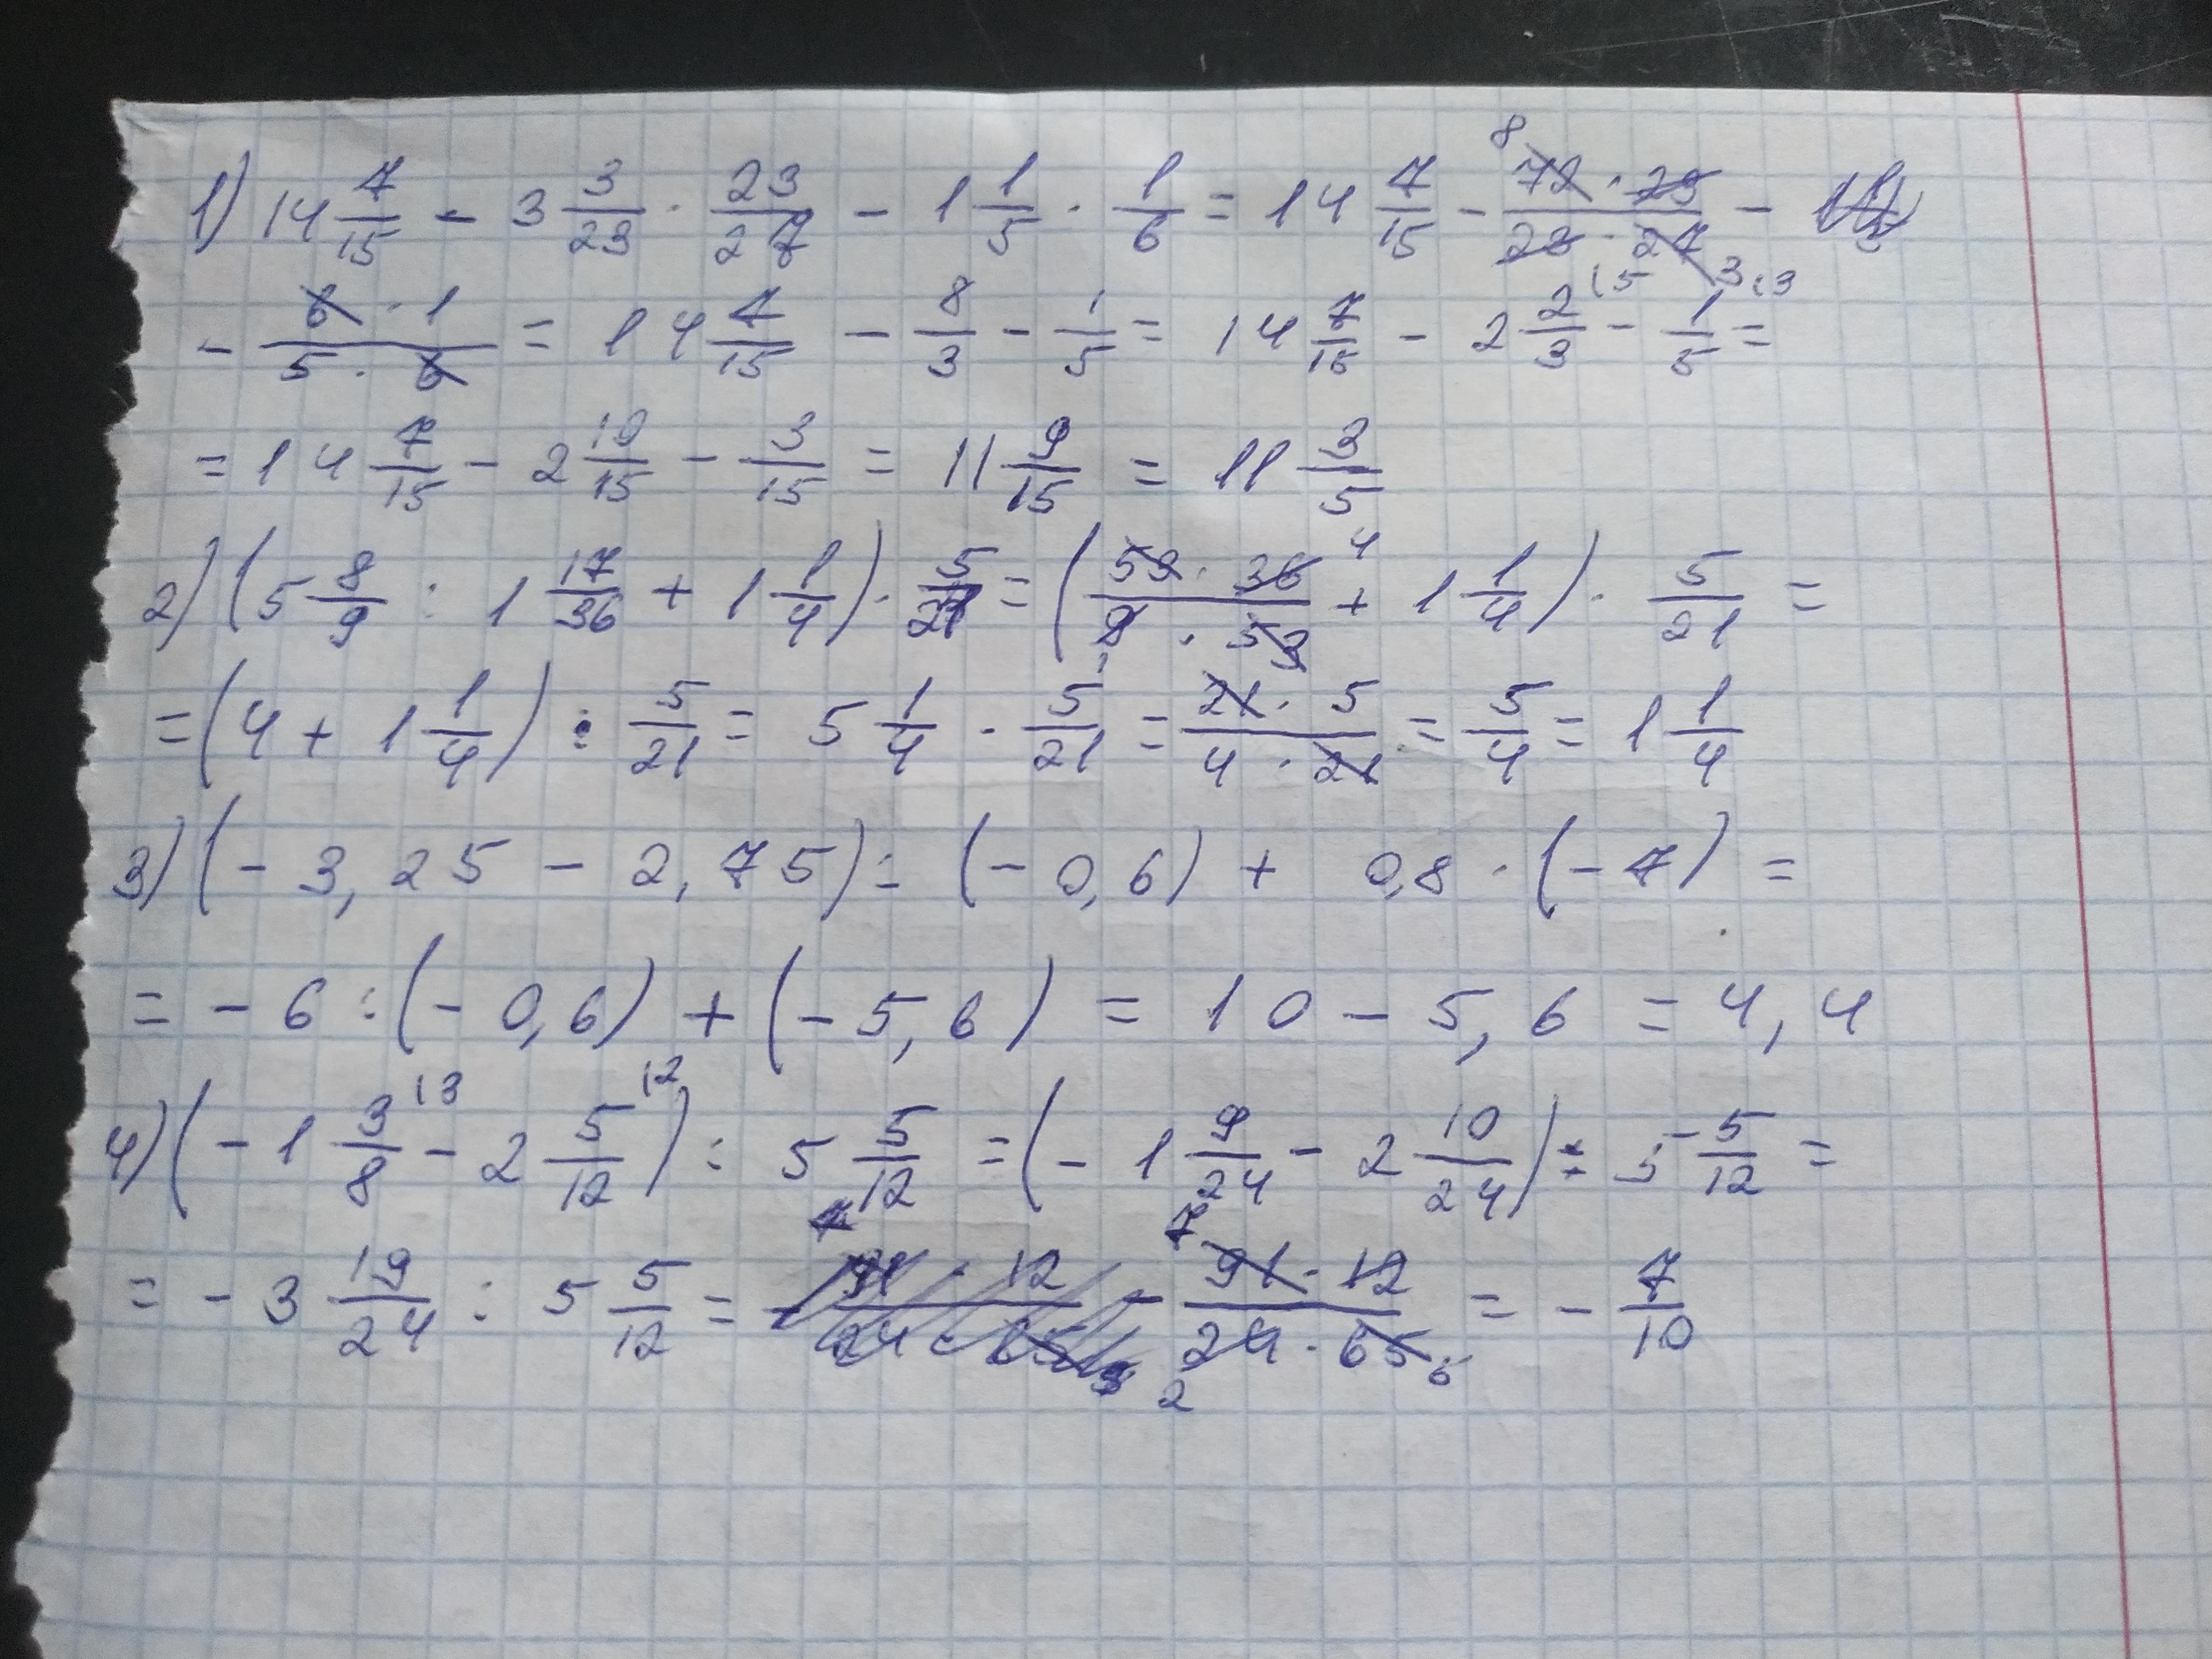 1) 14 7/15 - 3 3/23 · 23/27 - 1 1/5 · 1/6 = 14 7/15 - 72 · 23/23 · 27 -
- 6 · 1/5 · 6 = 14 7/15 - 8/3 - 1/5 = 14 7/15 - 2 2/3 - 1/5 =
= 14 7/15 - 2 10/15 - 3/15 = 11 9/15 = 11 3/5
2) (5 8/9 : 1 17/36 + 1 1/4) · 5/21 = (53 · 36/9 · 53 + 1 1/4) · 5/21 =
= (4 + 1 1/4) : 5/21 = 5 1/4 · 5/21 = 21 · 5/4 · 21 = 5/4 = 1 1/4
3) (- 3,25 - 2,75) : (- 0,6) + 0,8 · (- 7) =
= - 6 : (- 0,6) + (- 5,6) = 10 - 5,6 = 4,4
4) (- 1 3/8 - 2 5/12) : 5 5/12 = (- 1 9/24 - 2 10/24) : 5 5/12 =
= - 3 19/24 : 5 5/12 = - 91 · 12/24 · 65 = - 7/10